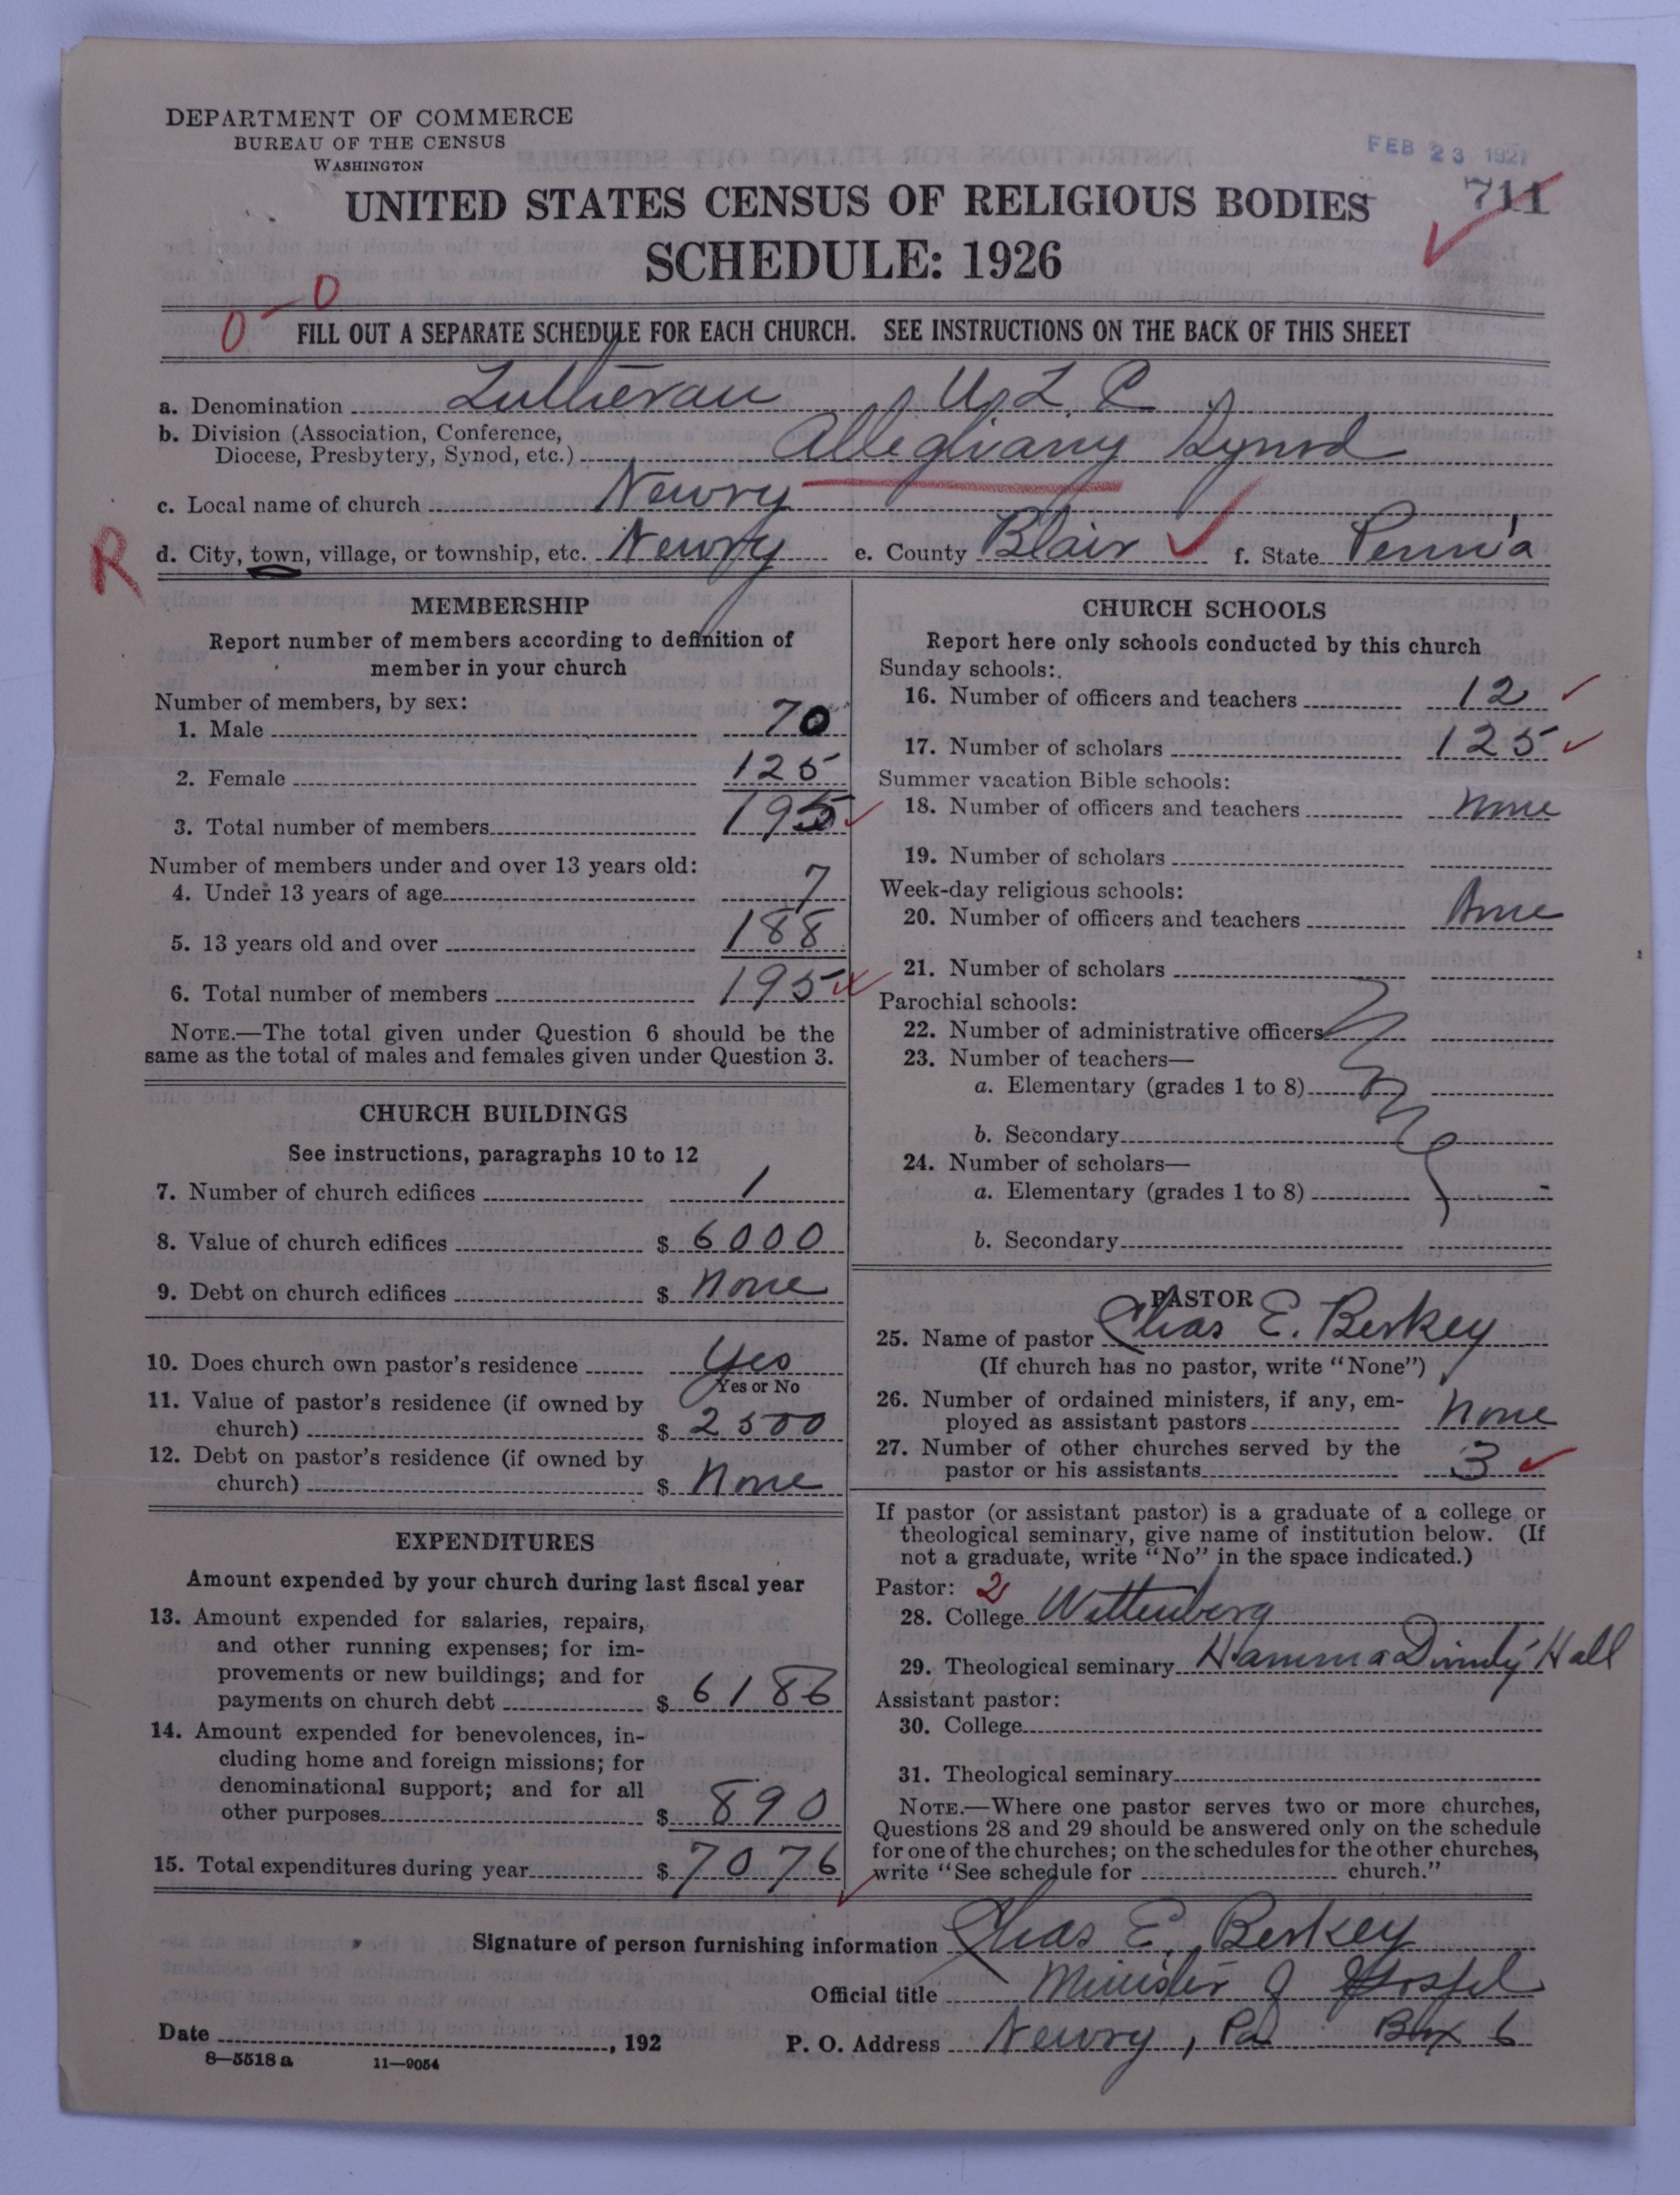 DEPARTMENT OF COMMERCE
BUREAU OF THE CENSUS
WASHINGTON
FEB 23 1927
711
UNITED STATES CENSUS OF RELIGIOUS BODIES
SCHEDULE: 1926
0 — 0
FILL OUT A SEPARATE SCHEDULE FOR EACH CHURCH. SEE INSTRUCTIONS ON THE BACK OF THIS SHEET
a. Denomination Lutheran U. L. C.
b. Division (Association, Conference,
Diocese, Presbytery, Synod, etc.) Alleghany Synod
c. Local name of church Newry
R
d. City, town, village, or township, etc. Newry e. County Blair f. State Penn'a
MEMBERSHIP
Report number of members according to definition of
member in your church
Number of members, by sex:
1. Male 70
2. Female 125
3. Total number of members 195
Number of members under and over 13 years old:
4. Under 13 years of age 7
5. 13 years old and over 188
6. Total number of members 195
NOTE.—The total given under Question 6 should be the
same as the total of males and females given under Question 3.
CHURCH BUILDINGS
See instructions, paragraphs 10 to 12
7. Number of church edifices 1
8. Value of church edifices $ 6000
9. Debt on church edifices $ None
10. Does church own pastor's residence Yes
Yes or No
11. Value of pastor's residence (if owned by
church) $ 2500
12. Debt on pastor's residence (if owned by
church) $ None
EXPENDITURES
Amount expended by your church during last fiscal year
13. Amount expended for salaries, repairs,
and other running expenses; for im-
provements or new buildings; and for
payments on church debt $ 6186
14. Amount expended for benevolences, in-
cluding home and foreign missions; for
denominational support; and for all
other purposes $ 890
15. Total expenditures during year $ 7076
CHURCH SCHOOLS
Report here only schools conducted by this church
Sunday schools:
16. Number of officers and teachers 12
17. Number of scholars 125
Summer vacation Bible schools:
18. Number of officers and teachers None
19. Number of scholars
Week-day religious schools:
20. Number of officers and teachers None
21. Number of scholars
Parochial schools:
22. Number of administrative officers
23. Number of teachers—
a. Elementary (grades 1 to 8)
b. Secondary
24. Number of scholars—
a. Elementary (grades 1 to 8)
b. Secondary
PASTOR
25. Name of pastor Chas E. Berkey
(If church has no pastor, write "None")
26. Number of ordained ministers, if any, em-
ployed as assistant pastors None
27. Number of other churches served by the
pastor or his assistants 3
If pastor (or assistant pastor) is a graduate of a college or
theological seminary, give name of institution below. (If
not a graduate, write "No" in the space indicated.)
Pastor: 2
28. College Wittenberg
29. Theological seminary Hamma Divinity Hall
Assistant pastor:
30. College
31. Theological seminary
NOTE.—Where one pastor serves two or more churches,
Questions 28 and 29 should be answered only on the schedule
for one of the churches; on the schedules for the other churches,
write "See schedule for church."
Signature of person furnishing information Chas E. Berkey
Official title Minister of Gospel
Date , 192 P. O. Address Newry, Pa Box 6
8—5518 a 11—9054